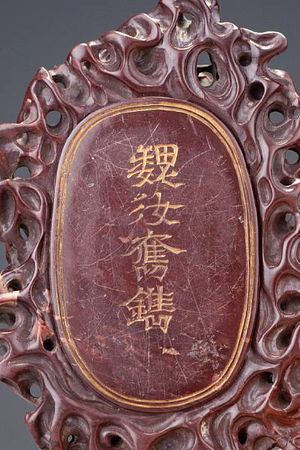 魏汝奮鐫